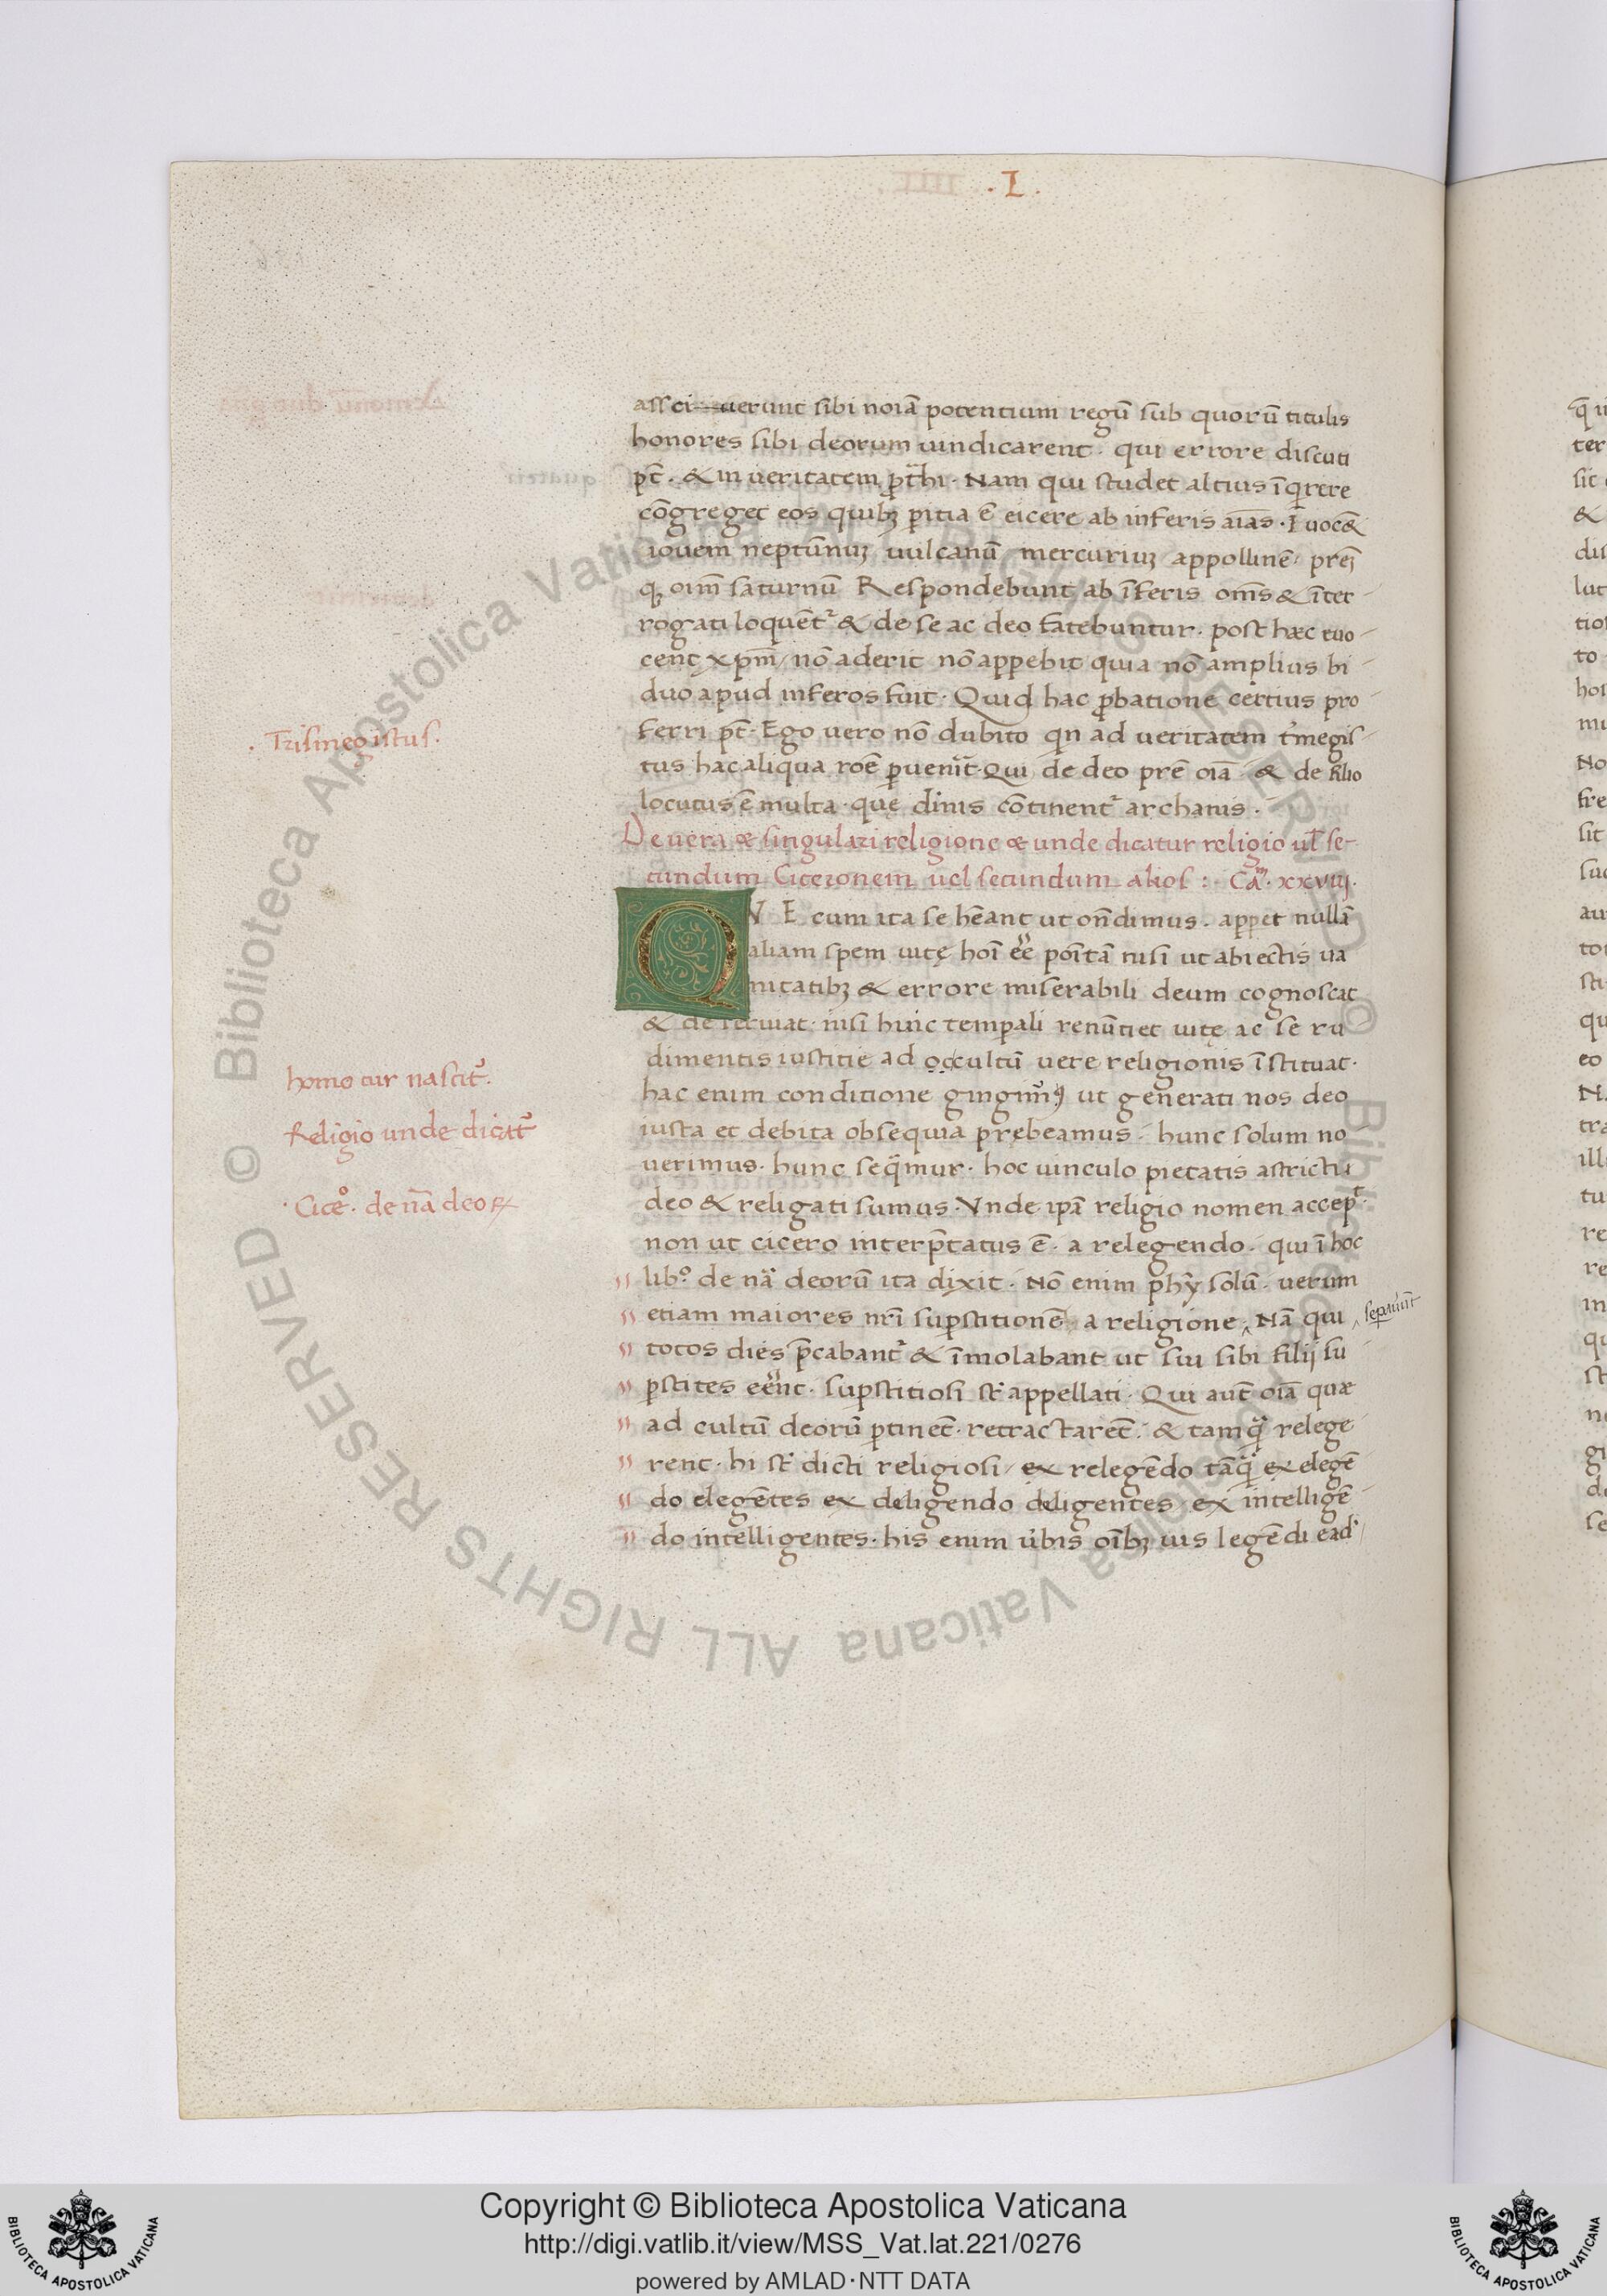 .L.
assci uerunt sibi noīa potentium regū sub quorū titulis
honores sibi deorum uindicarent. qui errore discuti
pt̄. & in ueritatem
Nam qui studet altius īqrere
cōgreget eos quibꝫ pitia ē eicere ab inferis aīas. Iuocet
iouem neptūnuꝫ uulcanū mercuriuꝫ appollinē. prēꝫ
qꝫ oīm saturnū Respondebunt ab īferis om̄s & īter
rogati loquēt̄ & de se ac deo fatebuntur. post hæc euo
cent xp̄m / nō aderit nō appebit quia nō amplius bi
duo apud inferos fuit. Quid hac ꝓbatione certius pro
ferri pt̄. Ego uero nō dubito qn ad ueritatem t̓megis
tus hac aliqua roē ꝑuenīt. Qui de deo prē oīa & de filio
locutus ē multa. quę diuīs cōtinent̄ archanis.
. Trismegistus.
De uera & singulari religione & unde dicatur religio ul̄ se-
cundum Ciceronem uel secundum alios :. Cām. xxviij.
QVE cum ita se hēant ut on̄dimus. appet nullā
aliam spem uitę hoī eē poītā nisi ut abiectis ua
nitatibꝫ & errore miserabili deum cognoscat
& deo seruiat. nisi huic tempali renūtiet uitę ac se ru
dimentis iustitie ad occultū uere religionis īstituat.
hac enim conditione gingim̄ꝰ ut generati nos deo
iusta et debita obsequia prębeamus. hunc solum no
uerimus. hunc seqmur. hoc uinculo pietatis astricti
deo & religati sumus. Vnde ipā religio nomen accep̄t.
non ut cicero interp̄tatus ē. a relegendo. qui ī hoc
lib.º de nā deorū ita dixit. Nō enim phȳ solū. uerum
etiam maiores nr̄i supstitionē a religione. Nā qui
sepauūt
totos dies p̄cabant̄ & īmolabant ut sui sibi filij su
pstites eēnt. supstitiosi st̄ appellati. Qui aut̄ oīa quæ
ad cultū deorū ptinēt. retractarēt. & tamq̄ relege
rent. hi st̄ dicti religiosi / ex relegēdo tāq̄ ex elegē
do elegētes ex deligendo deligentes. ex intelligē
do intelligentes. his enim ūbis oībꝫ uis legēdi ead
homo cur nascit̄.
Religio unde dicat̄
. Cicē. de nā deoꝝ
Copyright © Biblioteca Apostolica Vaticana
http://digi.vatlib.it/view/MSS_Vat.lat.221/0276
powered by AMLAD·NTT DATA
BIBLIOTECA APOSTOLICA VATICANA
BIBLIOTECA APOSTOLICA VATICANA
© Biblioteca Apostolica Vaticana ALL RIGHTS RESERVED © Biblioteca Apostolica Vaticana ALL RIGHTS RESERVED